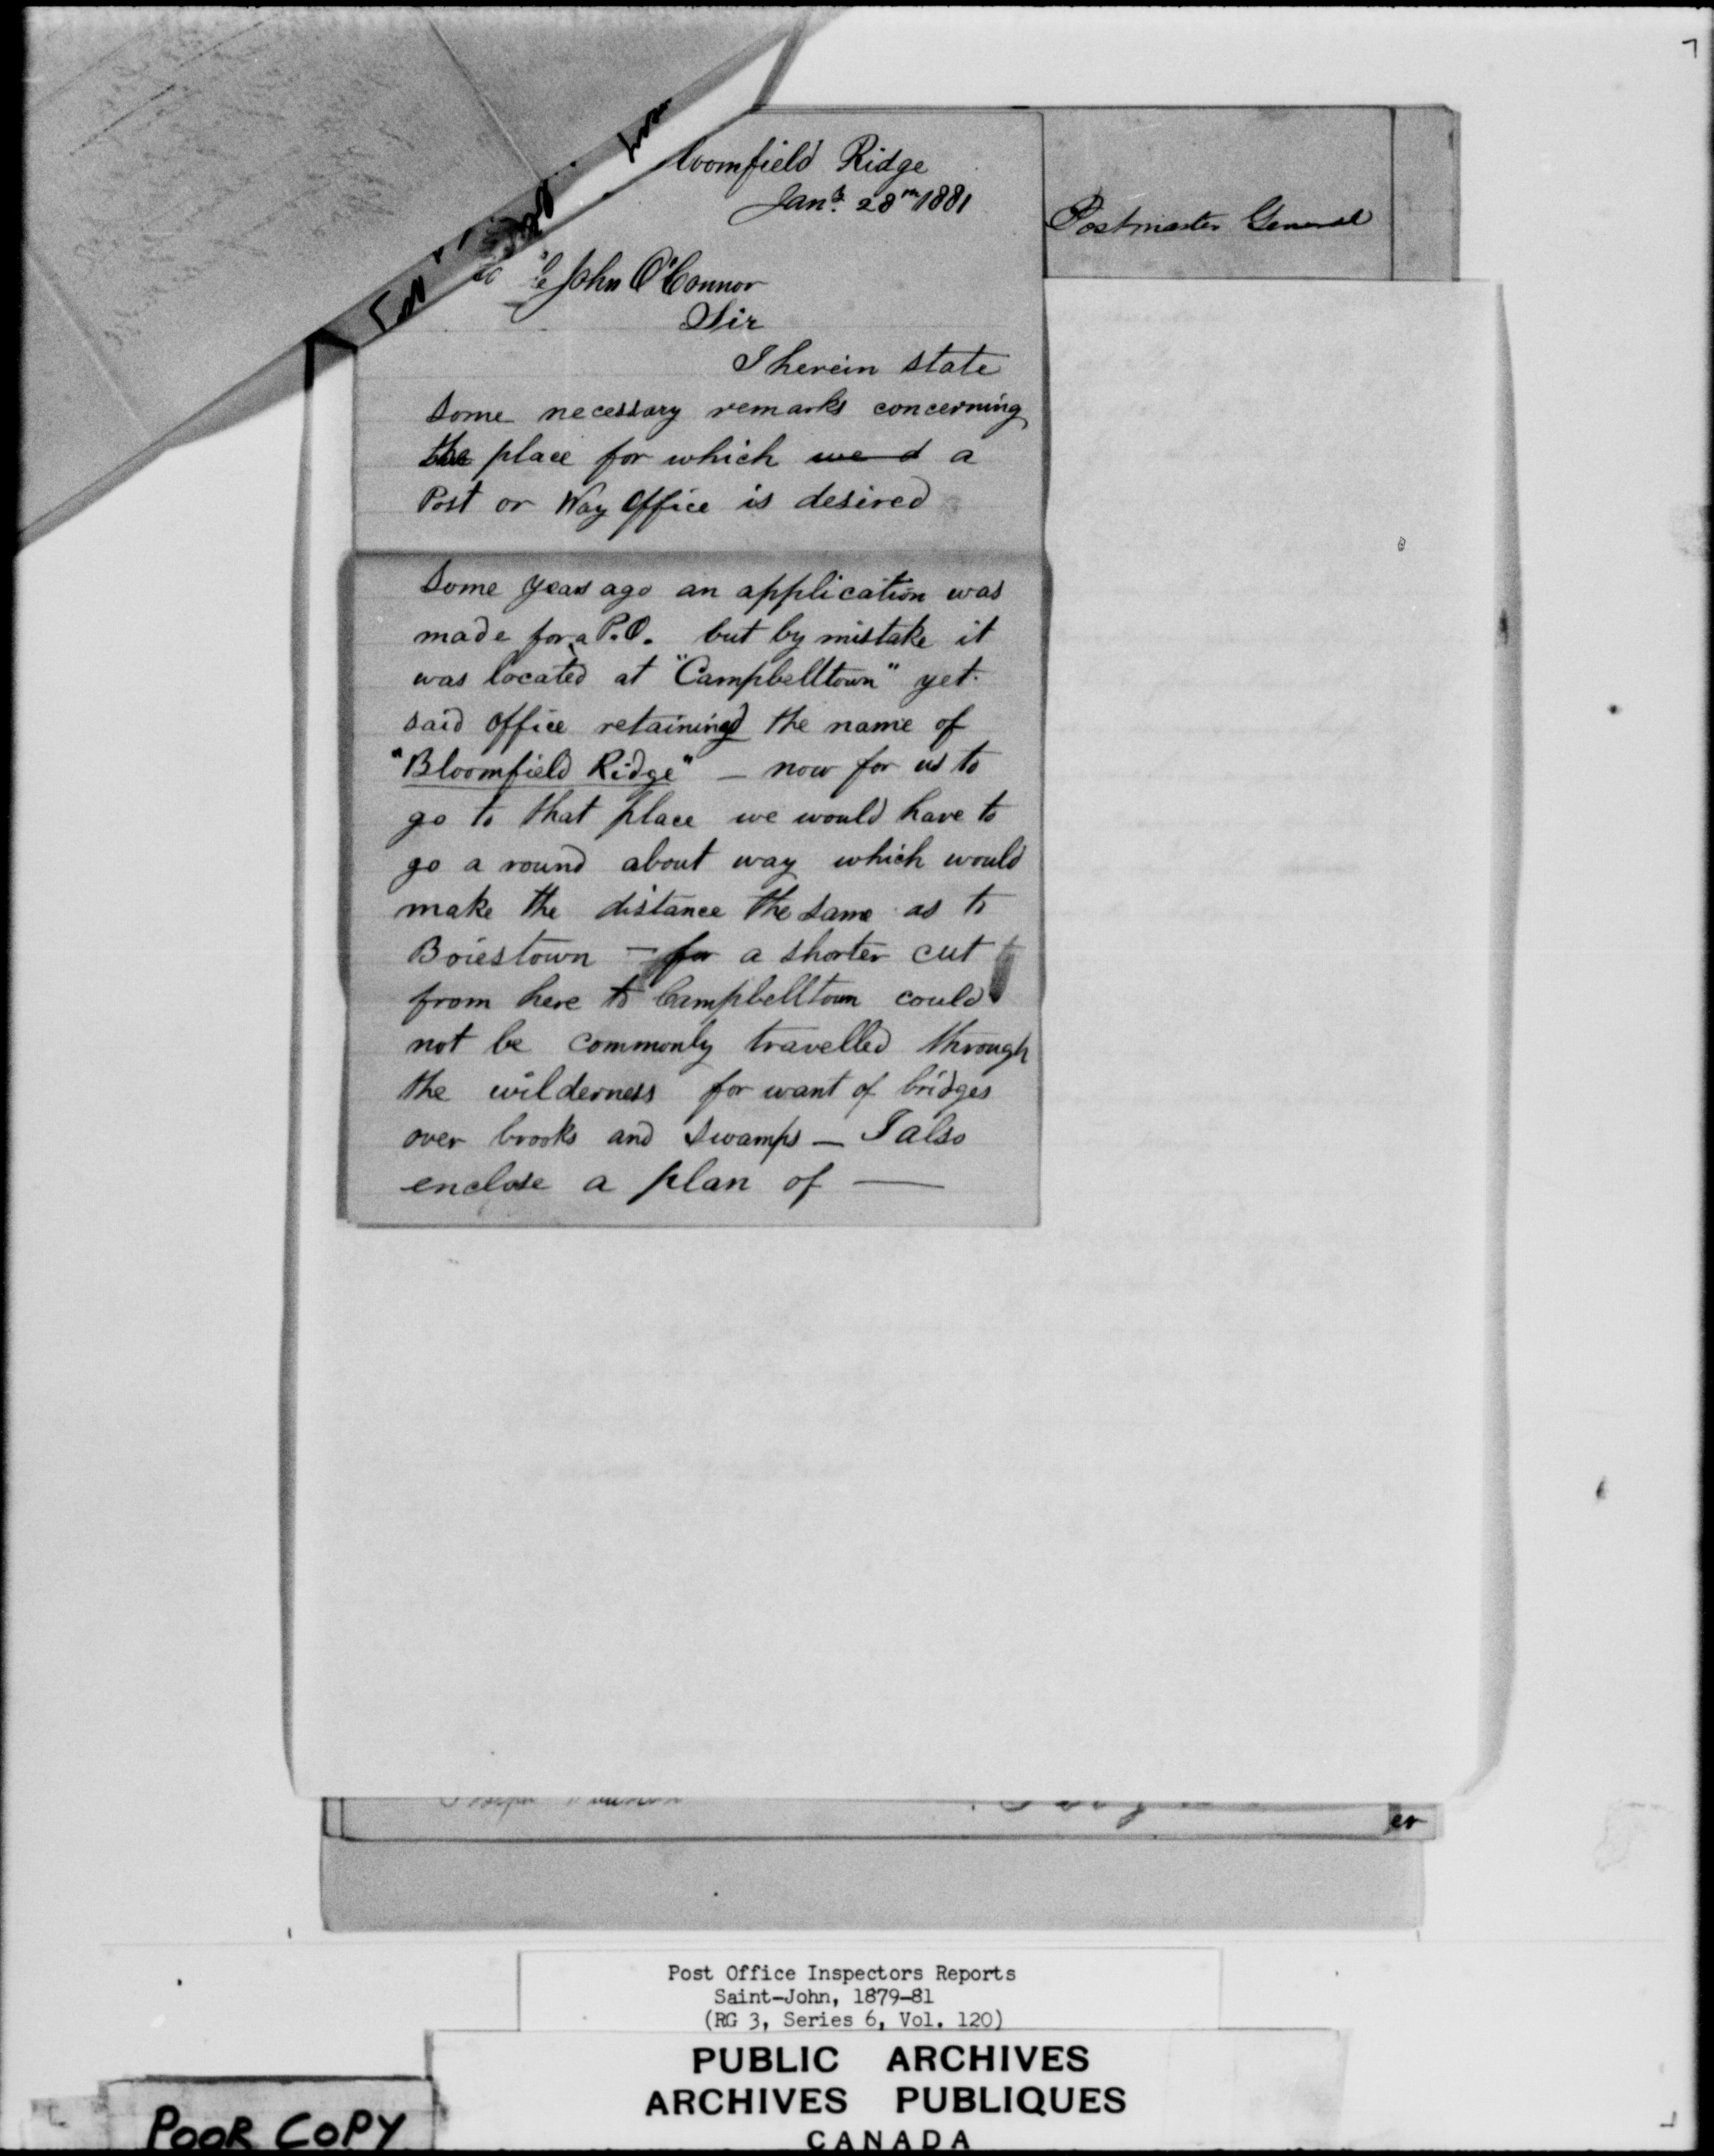 loomfield Ridge
Jany. 28th 1881
Postmaster General
John O'Connor
Sir
I herein state
some necessary remarks concerning
the place for which a
Post or Way Office is desired
Some years ago an application was
made for a P.O. but by mistake it
was located at "Campbelltown" yet
said office retained the name of
"Bloomfield Ridge" — now for us to
go to that place we would have to
go a round about way which would
make the distance the same as to
Boiestown — for a shorter cut
from here to Campbelltown could
not be commonly travelled through
the wilderness for want of bridges
over brooks and swamps — I also
enclose a plan of —
er
Post Office Inspectors Reports
Saint-John, 1879-81
(RG 3, Series 6, Vol. 120)
PUBLIC ARCHIVES
ARCHIVES PUBLIQUES
CANADA
POOR COPY